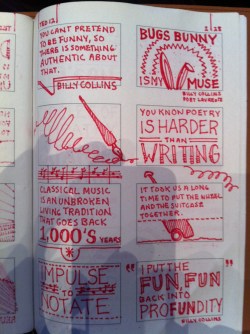 FEB 12
YOU CANT PRETEND
TO BE FUNNY, SO
THERE IS SOMETHING
AUTHENTIC ABOUT
THAT.
BILLY COLLINS
BUGS BUNNY
IS MY MUSE
BILLY COLLINS
POET LAUREATE
YOU KNOW POETRY
IS HARDER
THAN
WRITING
CLASSICAL MUSIC
IS AN UNBROKEN
LIVING TRADITION
THAT GOES BACK
1,000'S YEARS
IT TOOK US A LONG
TIME TO PUT THE WHEEL
AND THE SUITCASE
TOGETHER.
IMPULSE
TO
NOTATE
"I PUT THE
FUN, FUN
BACK INTO
PROFUNDITY"
BILLY COLLINS